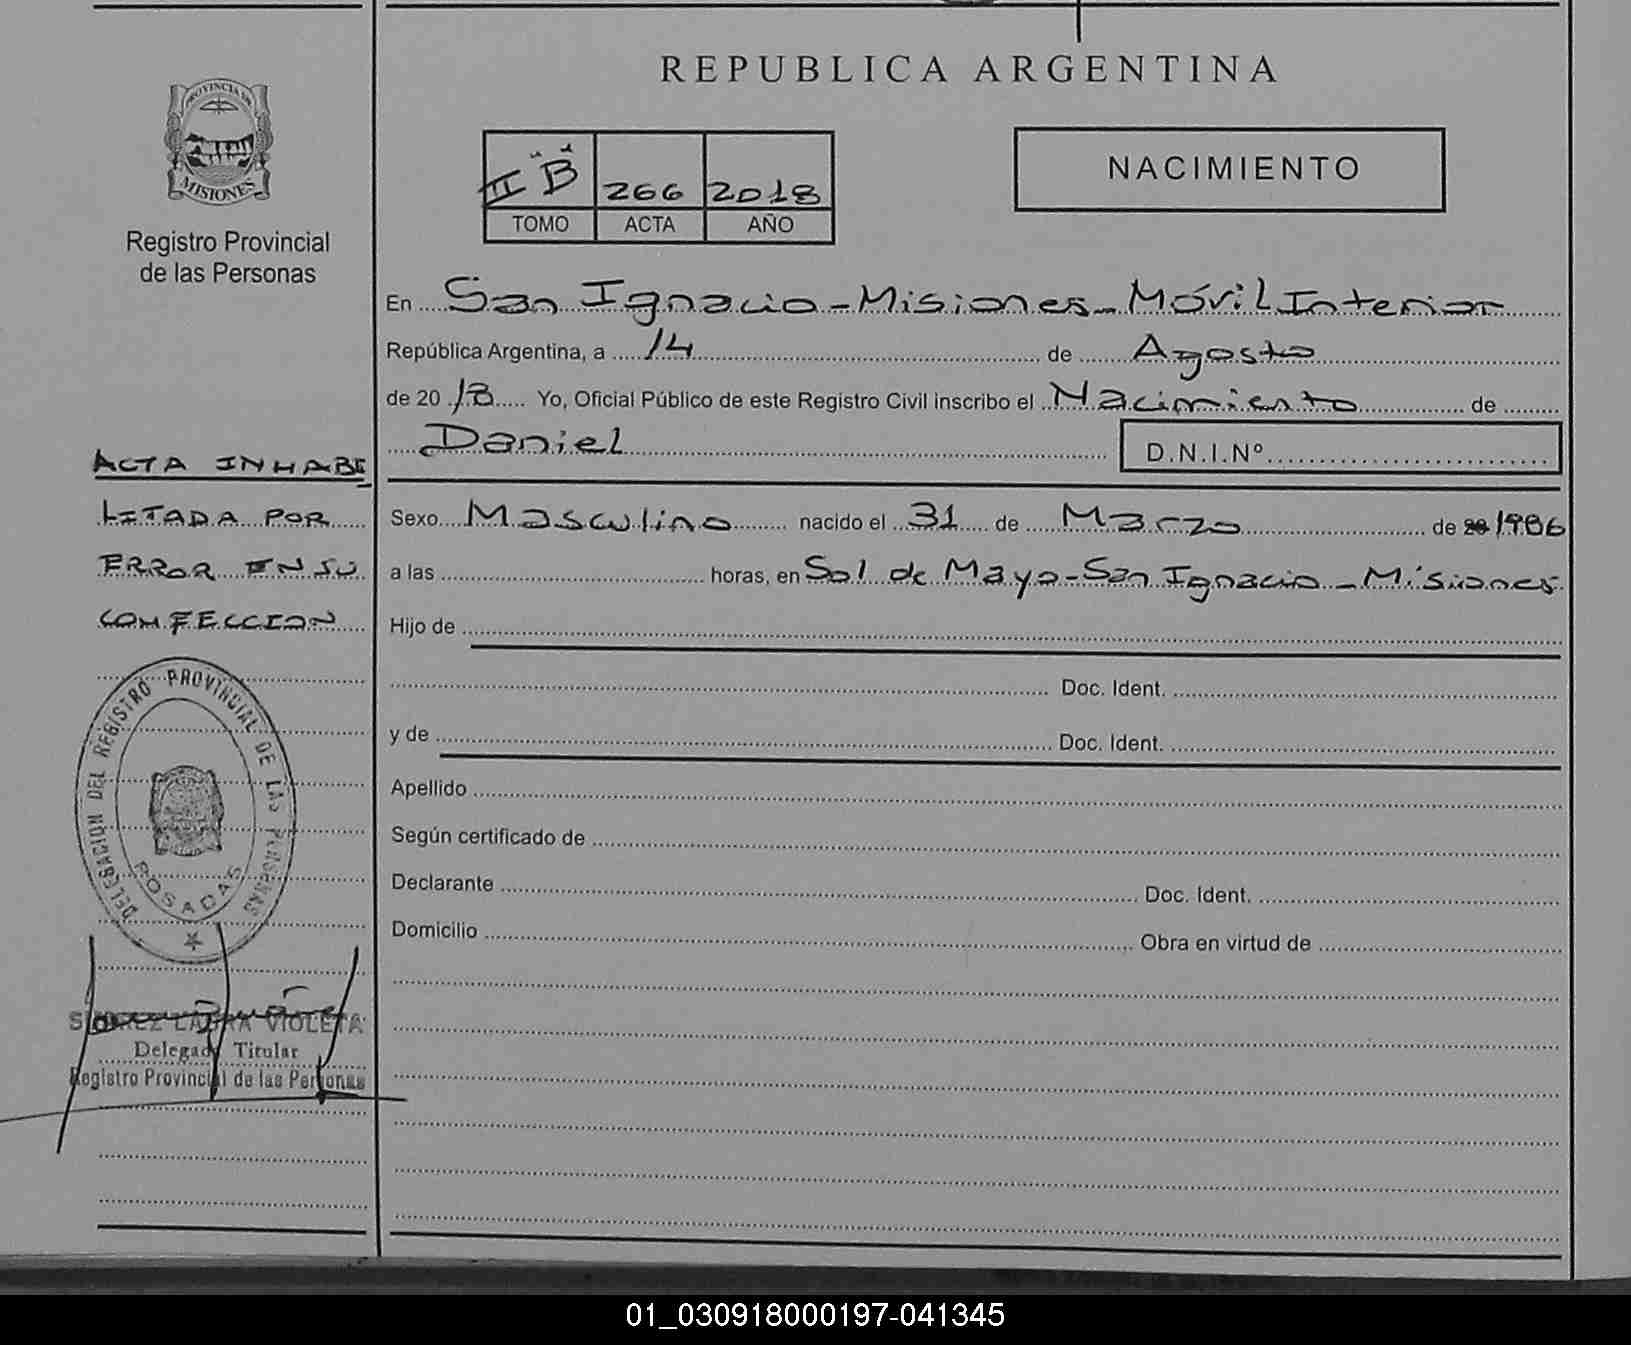 PROVINCIA DE
MISIONES
Registro Provincial
de las Personas
ACTA INHABI
LITADA POR
ERROR EN SU
CONFECCION
DELEGACION DEL REGISTRO PROVINCIAL DE LAS PERSONAS
POSADAS
SUAREZ LAURA VIOLETA
Delegada Titular
Registro Provincial de las Personas
REPUBLICA ARGENTINA
II "B" 266 2018
TOMO ACTA AÑO
NACIMIENTO
En San Ignacio - Misiones - Móvil Interior
República Argentina, a 14 de Agosto
de 20 18 Yo, Oficial Público de este Registro Civil inscribo el Nacimiento de
Daniel D.N.I.Nº
Sexo Masculino nacido el 31 de Marzo de 20 1986
a las horas, en Sol de Mayo - San Ignacio - Misiones
Hijo de
Doc. Ident.
y de Doc. Ident.
Apellido
Según certificado de
Declarante Doc. Ident.
Domicilio Obra en virtud de
01_030918000197-041345